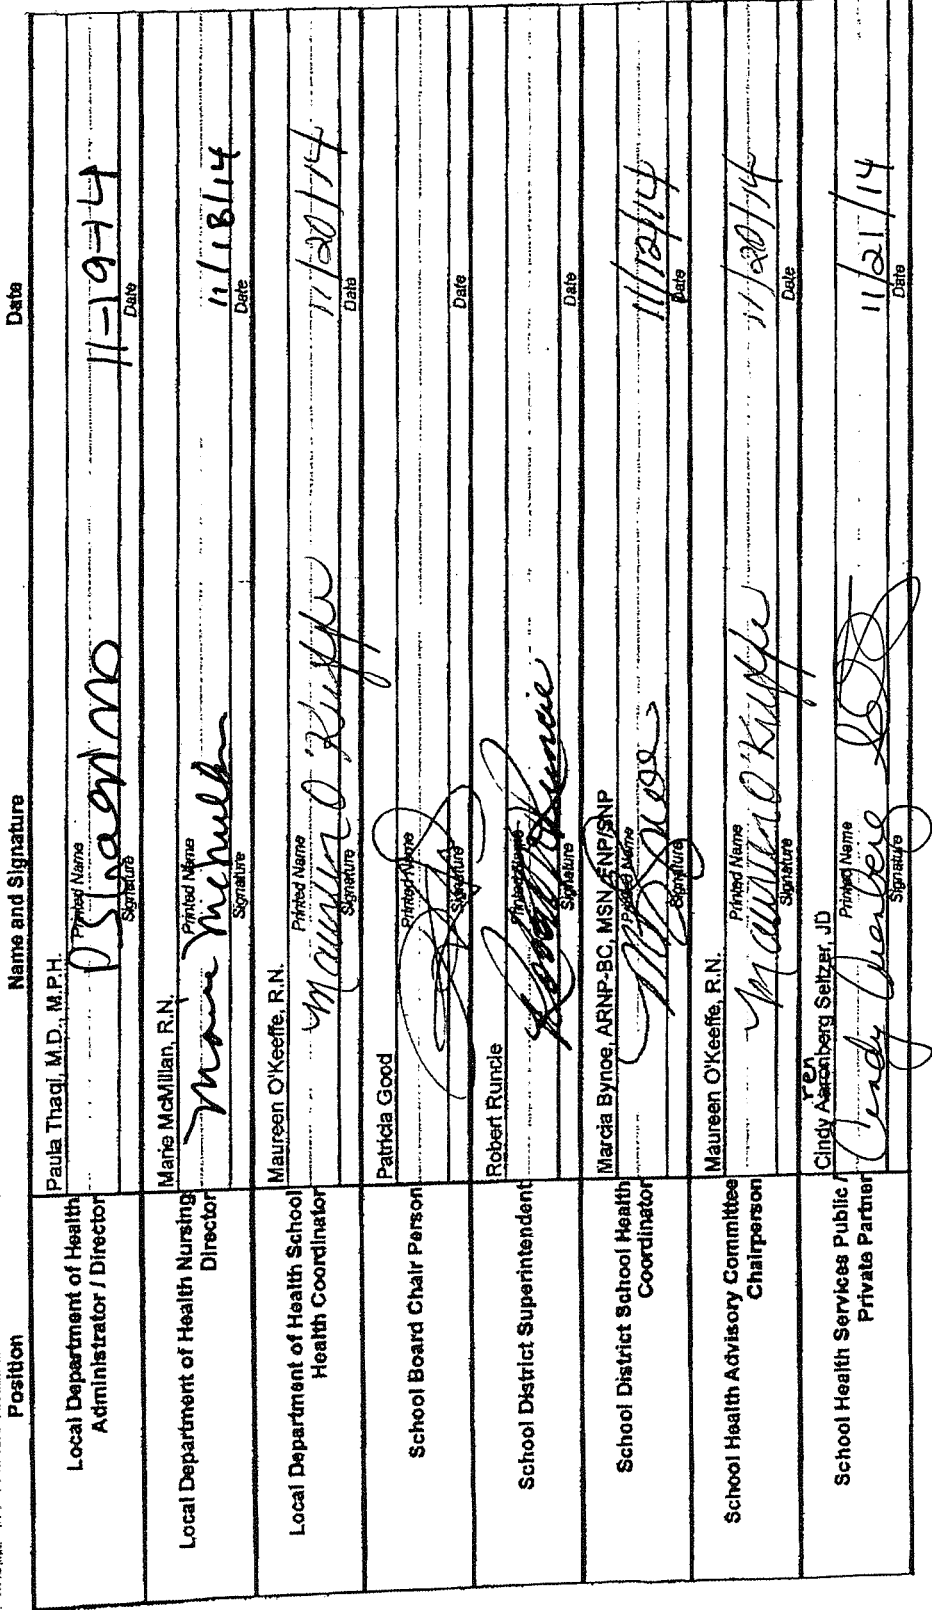 Position Name and Signature Date
Local Department of Health Administrator / Director
Paula Thaqi, M.D., M.P.H.
Printed Name
11-19-14
Signature Date
Local Department of Health Nursing Director
Marie McMillan, R.N.
Printed Name
Marie McMillan 11/18/14
Signature Date
Local Department of Health School Health Coordinator
Maureen O'Keeffe, R.N.
Printed Name
Maureen O'Keeffe 11/20/14
Signature Date
School Board Chair Person
Patricia Good
Printed Name
Signature Date
School District Superintendent
Robert Runcie
Printed Name
Robert Runcie
Signature Date
School District School Health Coordinator
Marcia Bynoe, ARNP-BC, MSN, FNP/SNP
Printed Name
11/12/14
Signature Date
School Health Advisory Committee Chairperson
Maureen O'Keeffe, R.N.
Printed Name
Maureen O'Keeffe 11/20/14
Signature Date
School Health Services Public / Private Partner
ren
Cindy Aaronberg Seltzer, JD
Printed Name
Cindy 11/21/14
Signature Date